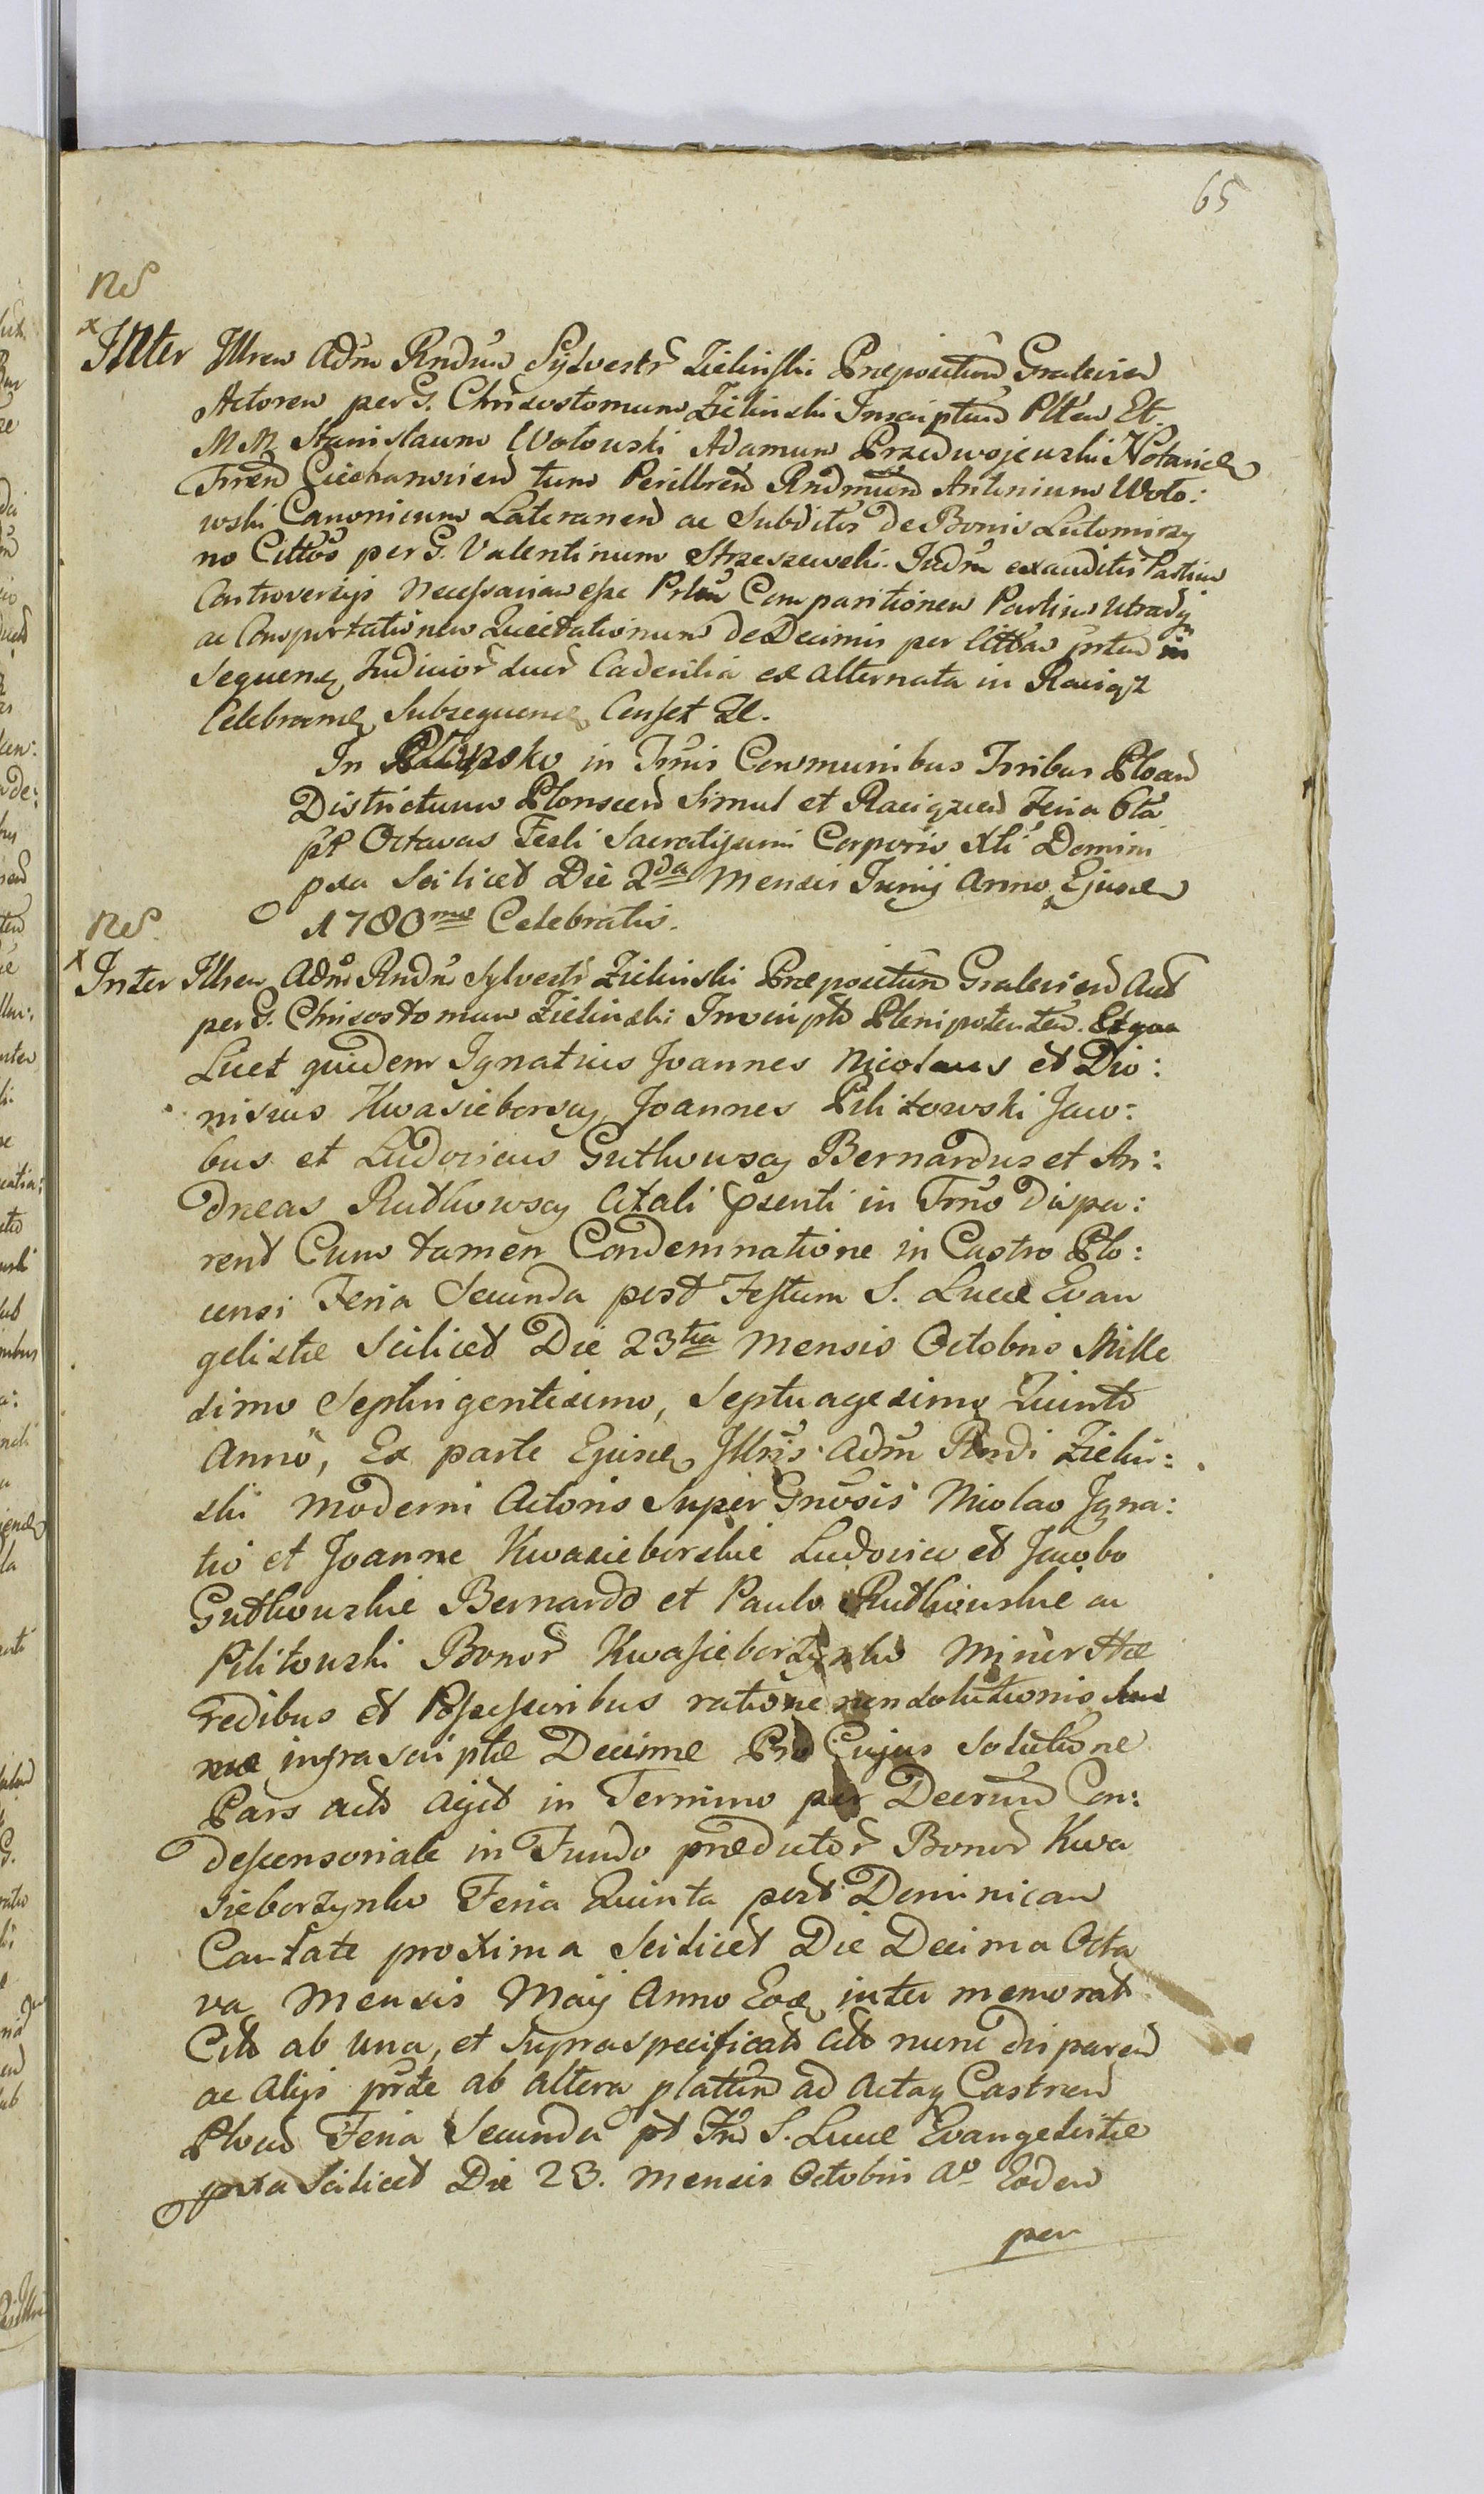 65
NS
x
Inter Illrem Adm Rndum Sylvestr Zielinski Præpositum Gralevien
Actorem per G. Chrisostomum Zielinski Inscriptum Plten Et
M M. Stanislaum Wotowski Adamum Przedwojewski Notarios
Trren Ciechanovien tum Perillrem Rndmum Antonium Woto:
wski Canonicum Lateranen ac Subditos de Bonis Lutomirzy
no Cittos per G. Valentinum Strzeszewski. Judm exauditis Partium
Controversijs Necessariam esse Comparitionem Partium
ac Comportationem Quietationum de Decimis per
Sequen Judicior Cadentia ex alternata in Raciąz
Celebran Subsequen Censet &c.
In in Trnis Communibus Trribus Plocen
Districtuum Plonscen Simul et Raciązien Feria 6ta
pt Octavas Festi Sacratissimi Corporis Xti Domini
pxa Scilicet Die 2da Mensis Junij Anno Ejusd
1780mo Celebratis.
NS
x
Inter Illrem Adm Rndm Sylvestr Zielinski Præpositum Gralevien Act
per G. Chrisostomum Zielinski Inscipt Plenipotenten. Et qua
Licet quidem Ignatius Joannes Nicolaus et Dio:
nisius Kwasieborscy Joannes Pilitowski Jaco:
bus et Ludovicus Gutkowscy Bernardus et An:
dreas Rutkowscy Citati Psenti in Trno dispa:
rent Cum tamen Condemnatione in Castro Plo:
censi Feria Secunda post Festum S. Lucæ Evan
gelistæ Scilicet Die 23tia Mensis Octobris Mille
simo Septingentesimo, Septuagesimo Quinto
Anno, Ex parte Ejusd Illris Adm Rndi Zielin:
ski moderni Actoris Super Gnosis Nicolao Igna:
tio et Joanne Kwasieborskie Ludovico et Jacobo
Gutkowskie Bernardo et Paulo Rutkowskie ac
Pilitowski Bonor Kwasieborzynko Minor Hæ
redibus et Possessoribus ratione non solutionis
infrascriptæ Decimæ Pro Cujus Solutione
Pars act agit in Termino per Decrum Con:
descensoriale in Fundo prædictor Bonor Kwa
sieborzynko Feria Quinta post Dominicam
Cantate proxima Scilicet Die Decima Octa
va Mensis Maij Anno Eod inter memorat
Citt ab una, et Supraspecificat Citt nunc disparen
ac alijs ab altera plattum ad Acta Castren
Plocen Feria Secunda pt Ftm S. Lucæ Evangelistæ
pxta Scilicet Die 23. Mensis Octobris Ao Eodem
per